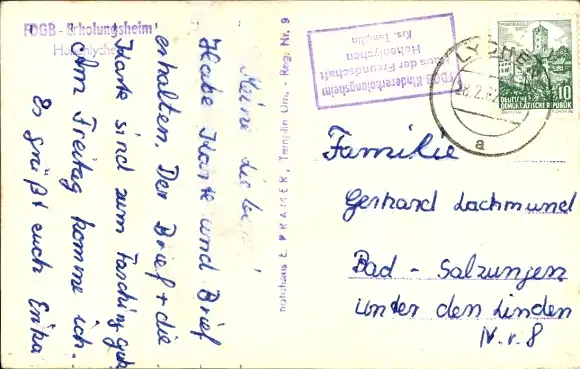 FDGB - Erholungsheim
Hohenlychen
Meine die lieben
Habe Karte und Brief
erhalten. Der Brief + die
Karte sind zum Fasching
Am Freitag komme ich.
Es grüßt euch Erika
E. KRAMER, Templin Um. - Reg. Nr. 9
FDGB Kindererholungsheim
Haus der Freundschaft
Hohenlychen
Krs. Templin
LYCHEN
a
WARTBURG
DEUTSCHE
DEMOKRATISCHE REPUBLIK
10
Familie
Gerhard Lachmund
Bad - Salzungen
Unter den Linden
N.r. 8